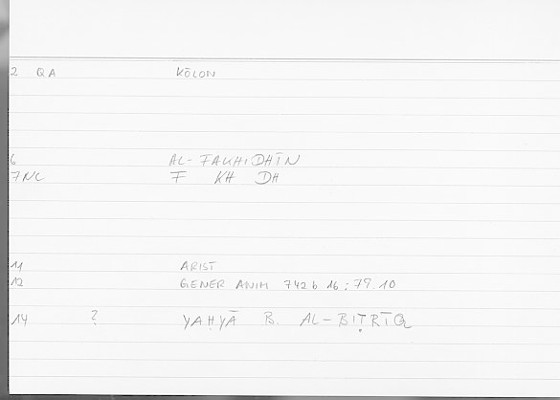 2 QA KŌLON
6 AL-FAKHIDHĪN
7NC F KH DH
11 ARIST
12 GENER ANIM 742b 16; 79.10
14 ? YAḤYĀ B. AL-BIṬRĪQ